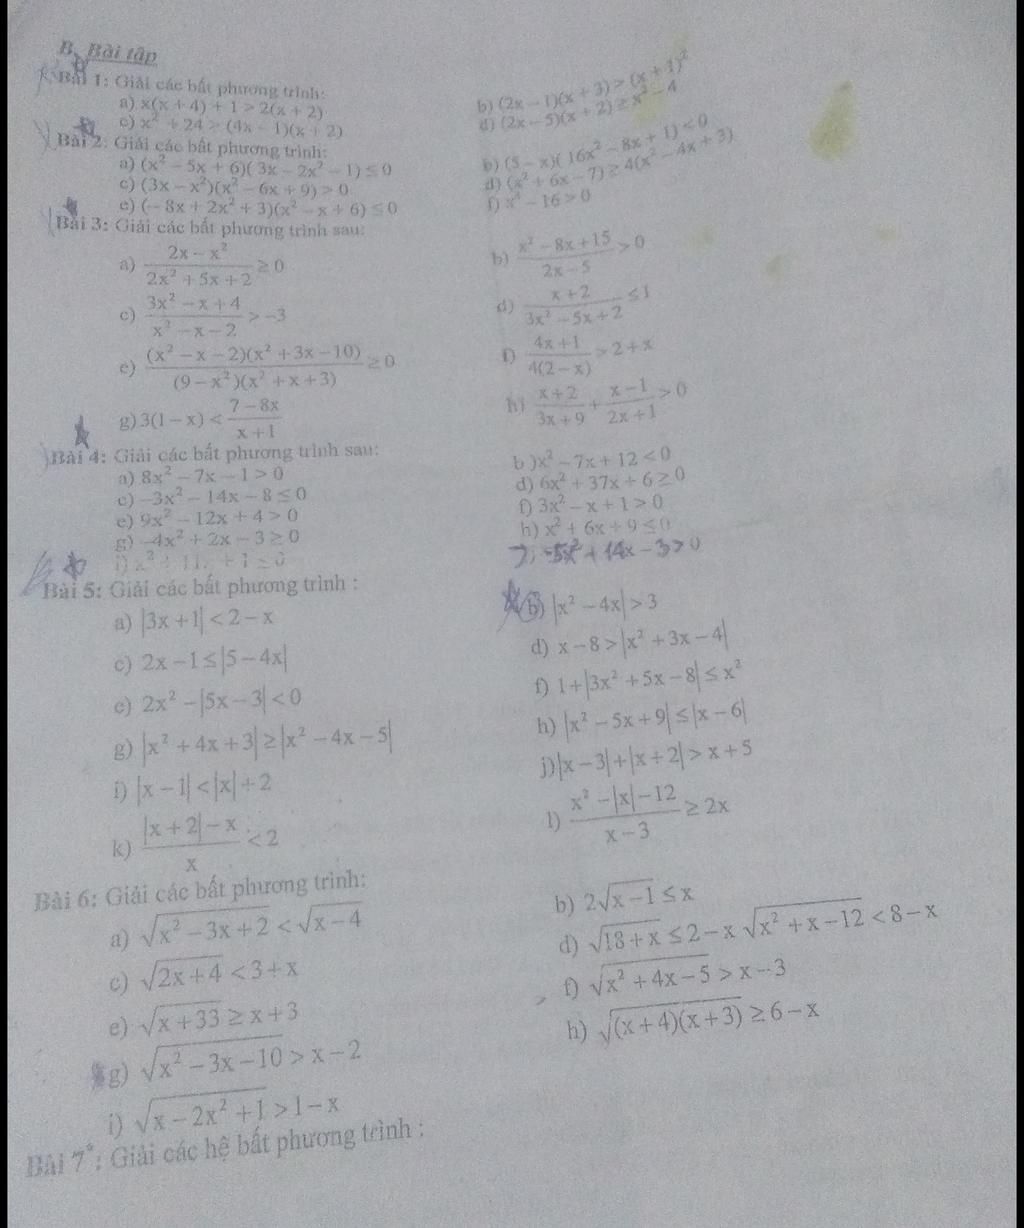 B. Bài tập
Bài 1: Giải các bất phương trình:
a) x(x + 4) + 1 > 2(x + 2)
b) (2x – 1)(x + 3) > (x + 1)²
c) x² + 24 > (4x – 1)(x + 2)
d) (2x – 5)(x + 2) ≥ x² – 4
Bài 2: Giải các bất phương trình:
a) (x² – 5x + 6)( 3x – 2x² – 1) ≤ 0
b) (5 – x)( 16x² – 8x + 1) < 0
c) (3x – x²)(x² – 6x + 9) > 0
d) (x² + 6x – 7) ≥ 4(x² – 4x + 3)
e) (– 8x + 2x² + 3)(x² – x + 6) ≤ 0
f) x⁴ – 16 > 0
Bài 3: Giải các bất phương trình sau:
a) (2x – x²)/(2x² + 5x + 2) ≥ 0
b) (x² – 8x + 15)/(2x – 5) > 0
c) (3x² – x + 4)/(x² – x – 2) > –3
d) (x + 2)/(3x² – 5x + 2) ≤ 1
e) ((x² – x – 2)(x² + 3x – 10))/((9 – x²)(x² + x + 3)) ≥ 0
f) (4x + 1)/(4(2 – x)) > 2 + x
g) 3(1 – x) < (7 – 8x)/(x + 1)
h) (x + 2)/(3x + 9) + (x – 1)/(2x + 1) > 0
Bài 4: Giải các bất phương trình sau:
a) 8x² – 7x – 1 > 0
b )x² – 7x + 12 < 0
c) –3x² – 14x – 8 ≤ 0
d) 6x² + 37x + 6 ≥ 0
e) 9x² – 12x + 4 > 0
f) 3x² – x + 1 > 0
g) –4x² + 2x – 3 ≥ 0
h) x² + 6x + 9 ≤ 0
-5x² + 14x – 3 > 0
Bài 5: Giải các bất phương trình :
a) |3x + 1| < 2 – x
b) |x² – 4x| > 3
c) 2x – 1 ≤ |5 – 4x|
d) x – 8 > |x² + 3x – 4|
e) 2x² – |5x – 3| < 0
f) 1 + |3x² + 5x – 8| ≤ x²
g) |x² + 4x + 3| ≥ |x² – 4x – 5|
h) |x² – 5x + 9| ≤ |x – 6|
i) |x – 1| < |x| + 2
j) |x – 3| + |x + 2| > x + 5
k) (|x + 2| – x)/x < 2
l) (x² – |x| – 12)/(x – 3) ≥ 2x
Bài 6: Giải các bất phương trình:
a) √(x² – 3x + 2) < √(x – 4)
b) 2√(x – 1) ≤ x
c) √(2x + 4) < 3 + x
d) √(18 + x) ≤ 2 – x √(x² + x – 12) < 8 – x
e) √(x + 33) ≥ x + 3
f) √(x² + 4x – 5) > x – 3
g) √(x² – 3x – 10) > x – 2
h) √((x + 4)(x + 3)) ≥ 6 – x
i) √(x – 2x² + 1) > 1 – x
Bài 7*: Giải các hệ bất phương trình :